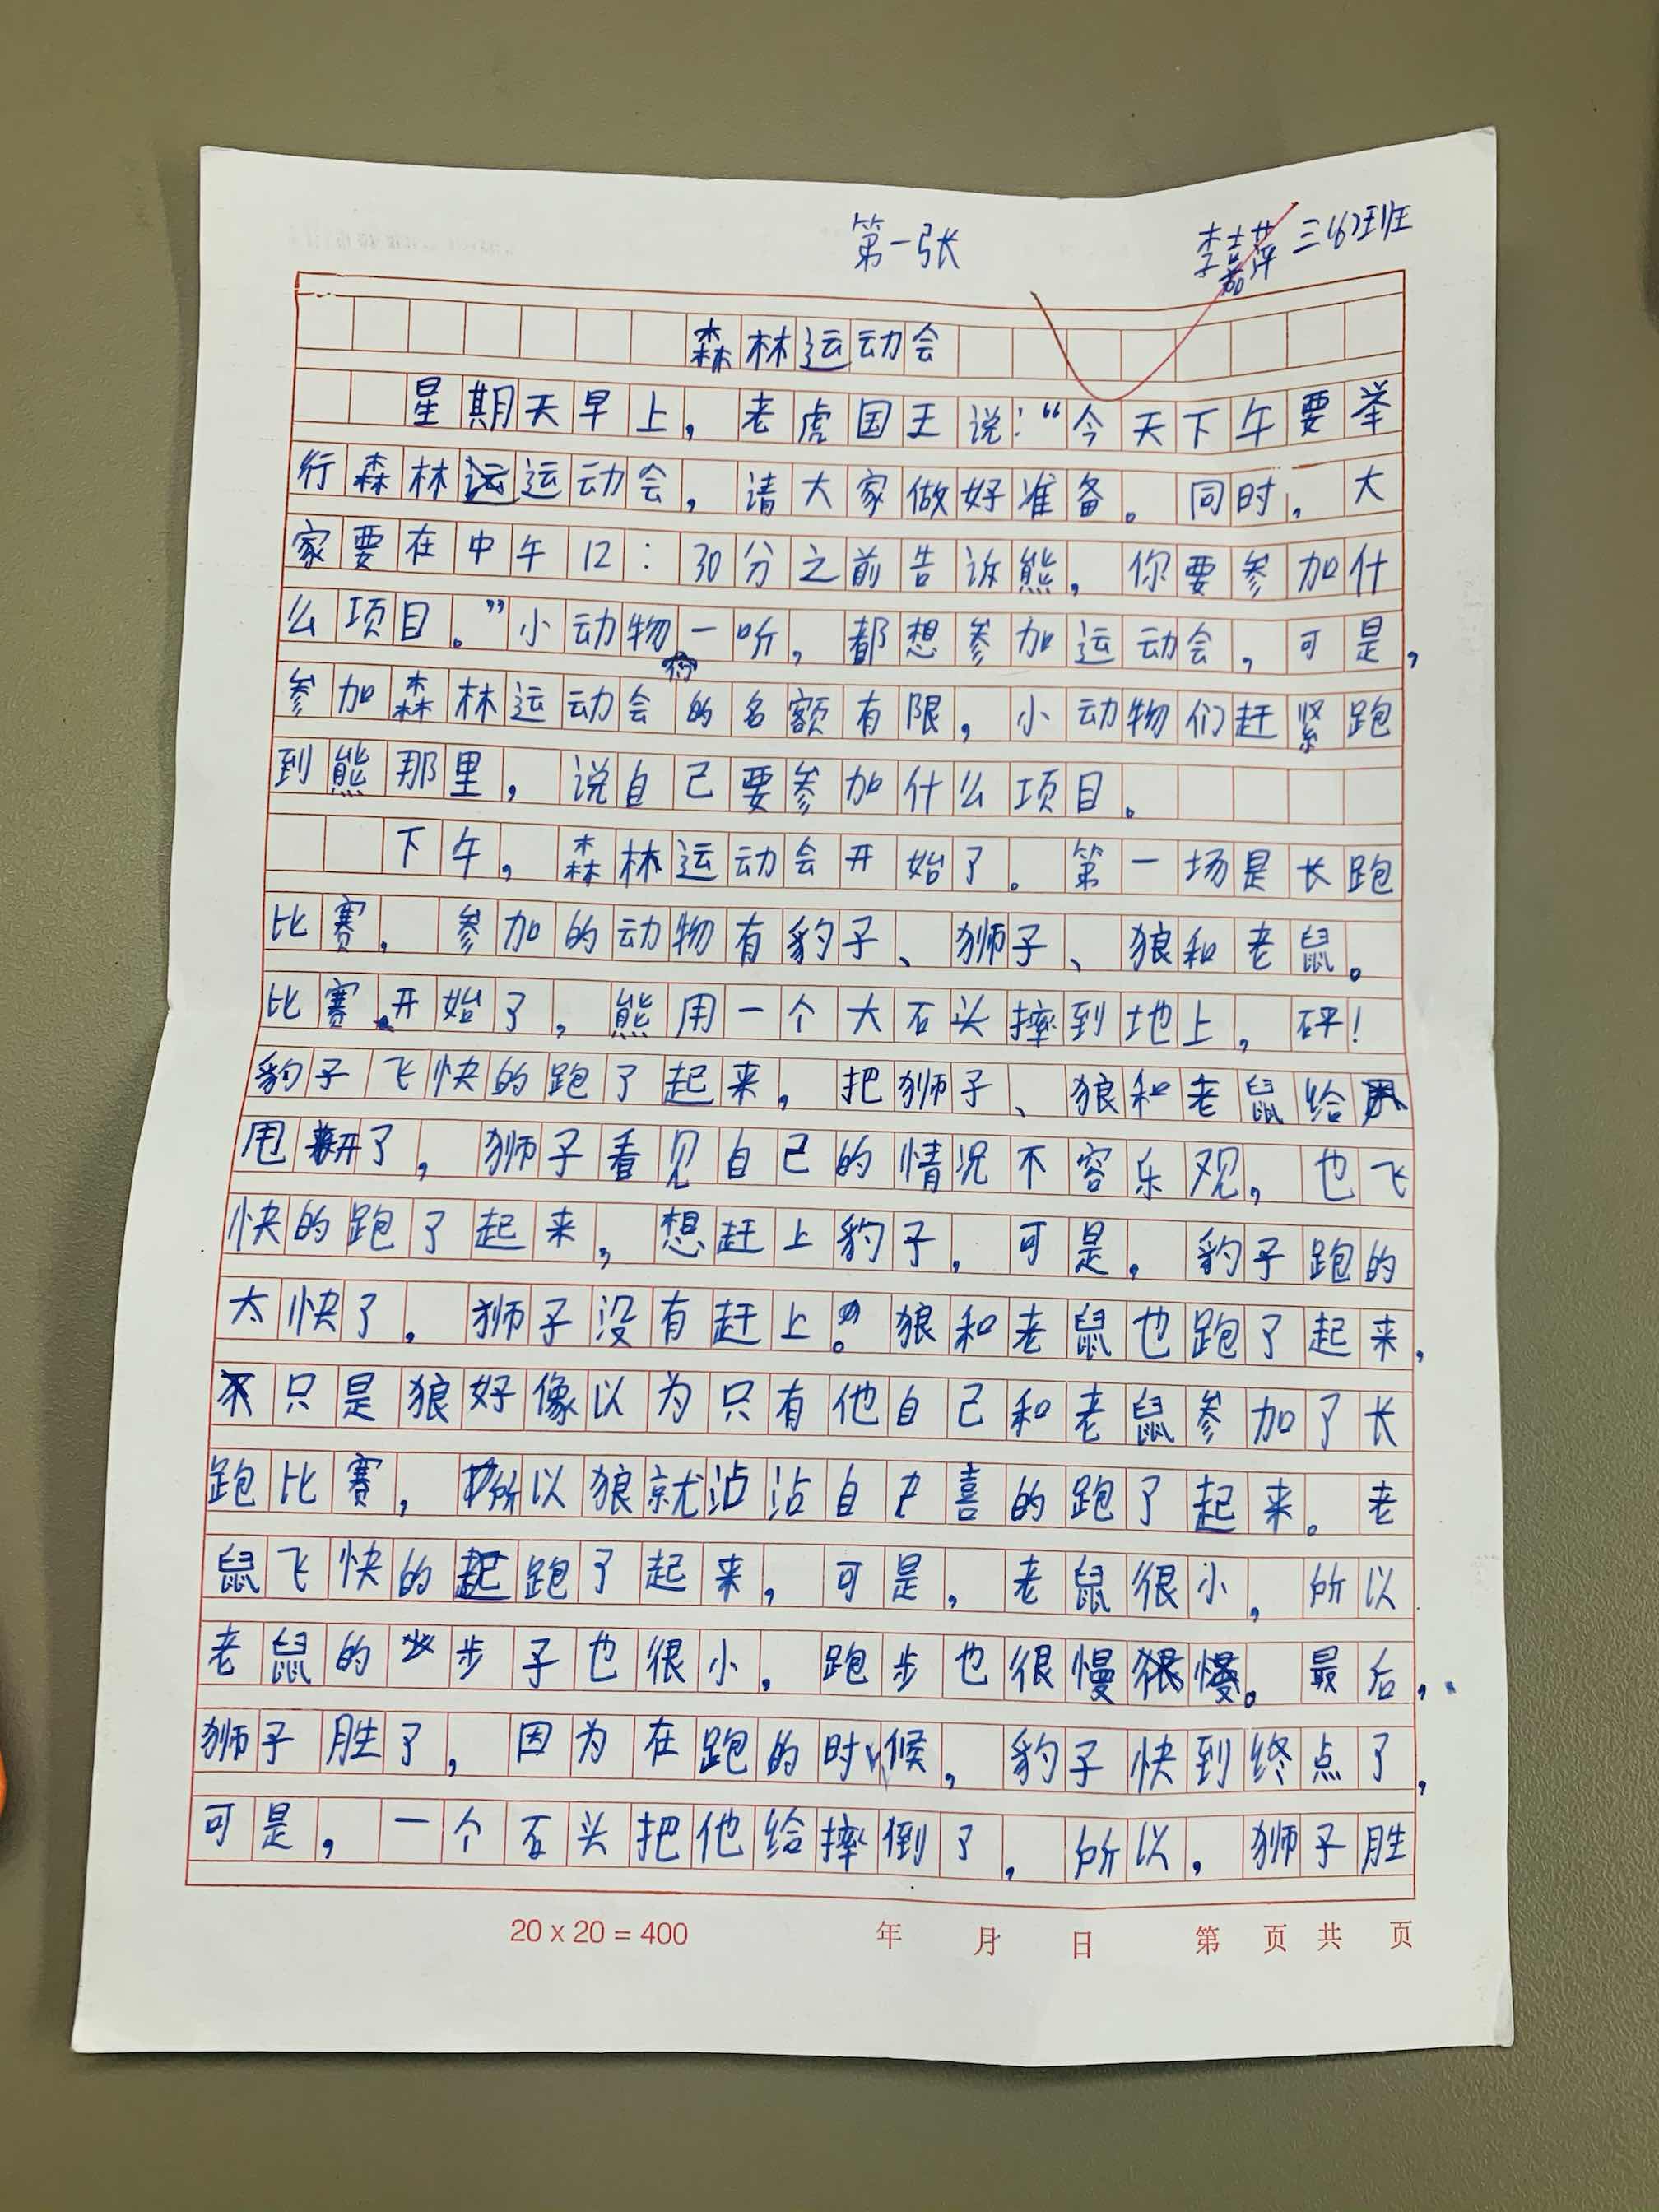 第一张
李嘉萍 三(6)班
森林运动会
星期天早上，老虎国王说：“今天下午要举
行森林运动会，请大家做好准备。同时，大
家要在中午12：30分之前告诉熊，你要参加什
么项目。”小动物一听，都想参加运动会，可是，
参加森林运动会的名额有限，小动物们赶紧跑
到熊那里，说自己要参加什么项目。
下午，森林运动会开始了。第一场是长跑
比赛，参加的动物有豹子、狮子、狼和老鼠。
比赛开始了，熊用一个大石头摔到地上，砰！
豹子飞快的跑了起来，把狮子、狼和老鼠给
甩开了，狮子看见自己的情况不容乐观，也飞
快的跑了起来，想赶上豹子，可是，豹子跑的
太快了，狮子没有赶上。狼和老鼠也跑了起来，
只是狼好像以为只有他自己和老鼠参加了长
跑比赛，所以狼就沾沾自喜的跑了起来。老
鼠飞快的跑了起来，可是，老鼠很小，所以
老鼠的步子也很小，跑步也很慢很慢。最后，
狮子胜了，因为在跑的时候，豹子快到终点了，
可是，一个石头把他给摔倒了，所以，狮子胜
20×20=400 年 月 日 第 页 共 页